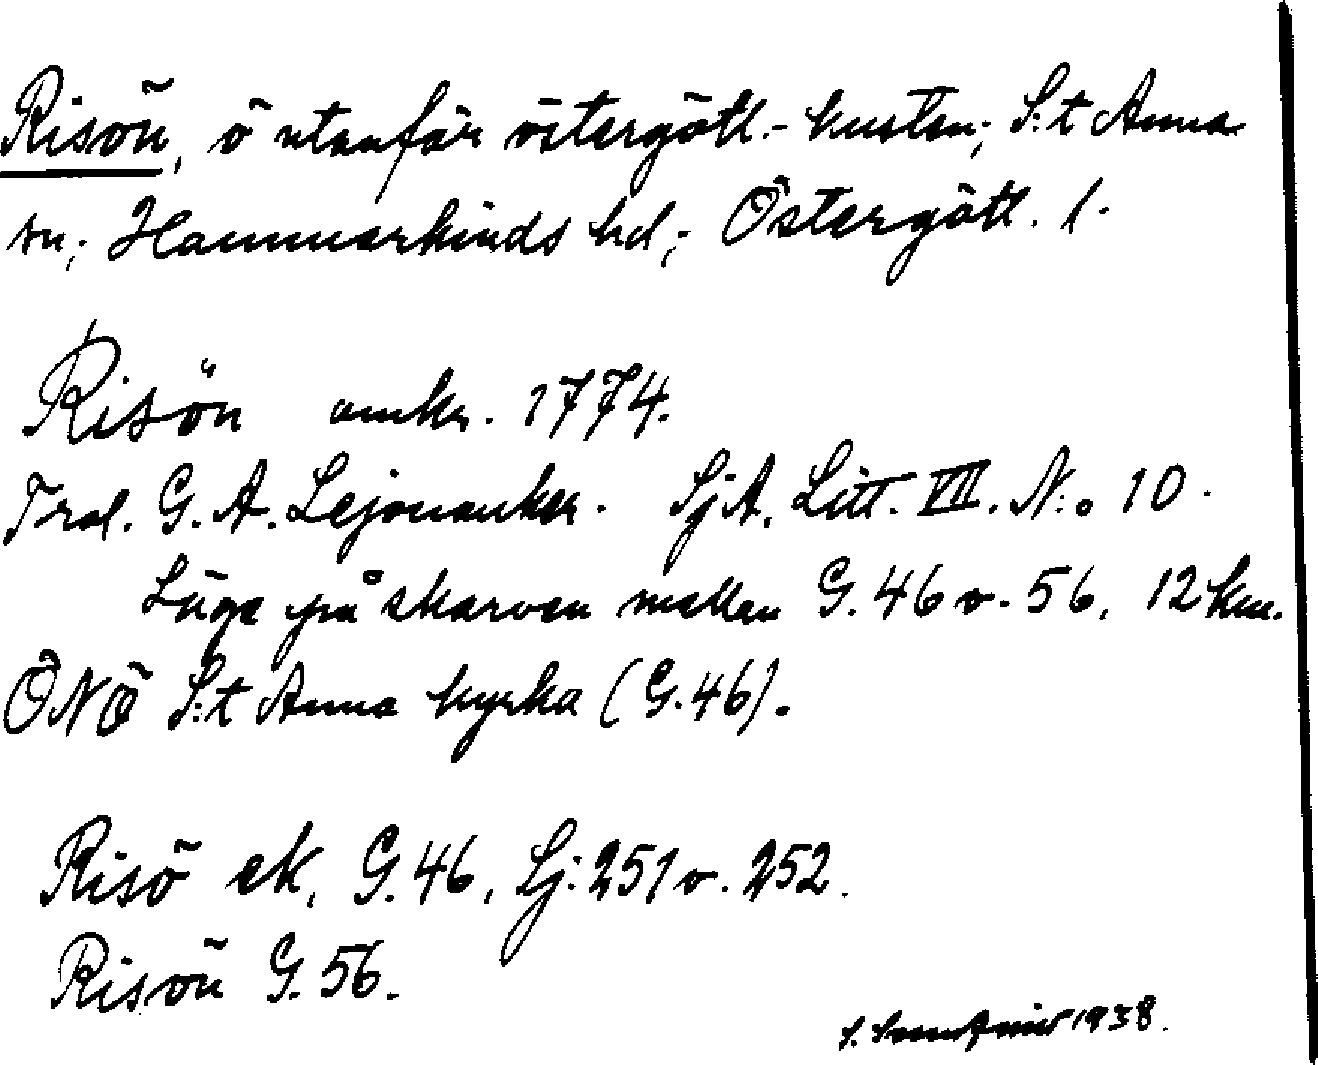 Risön, ö utanför östergötl.-kusten; S:t Anna
sn; Hammarkinds hd; Östergötl. l.
Risön omkr. 1774.
Trol. G. A. Lejonanker. SjA. Litt. VII. N:o 10.
Läge på skarven mellan G. 46 o. 56, 12 km.
ÖNÖ S:t Anna kyrka (G. 46).
Risö ek, G. 46, Sj: 251 o. 252.
Risön G. 56.
S. 1938.